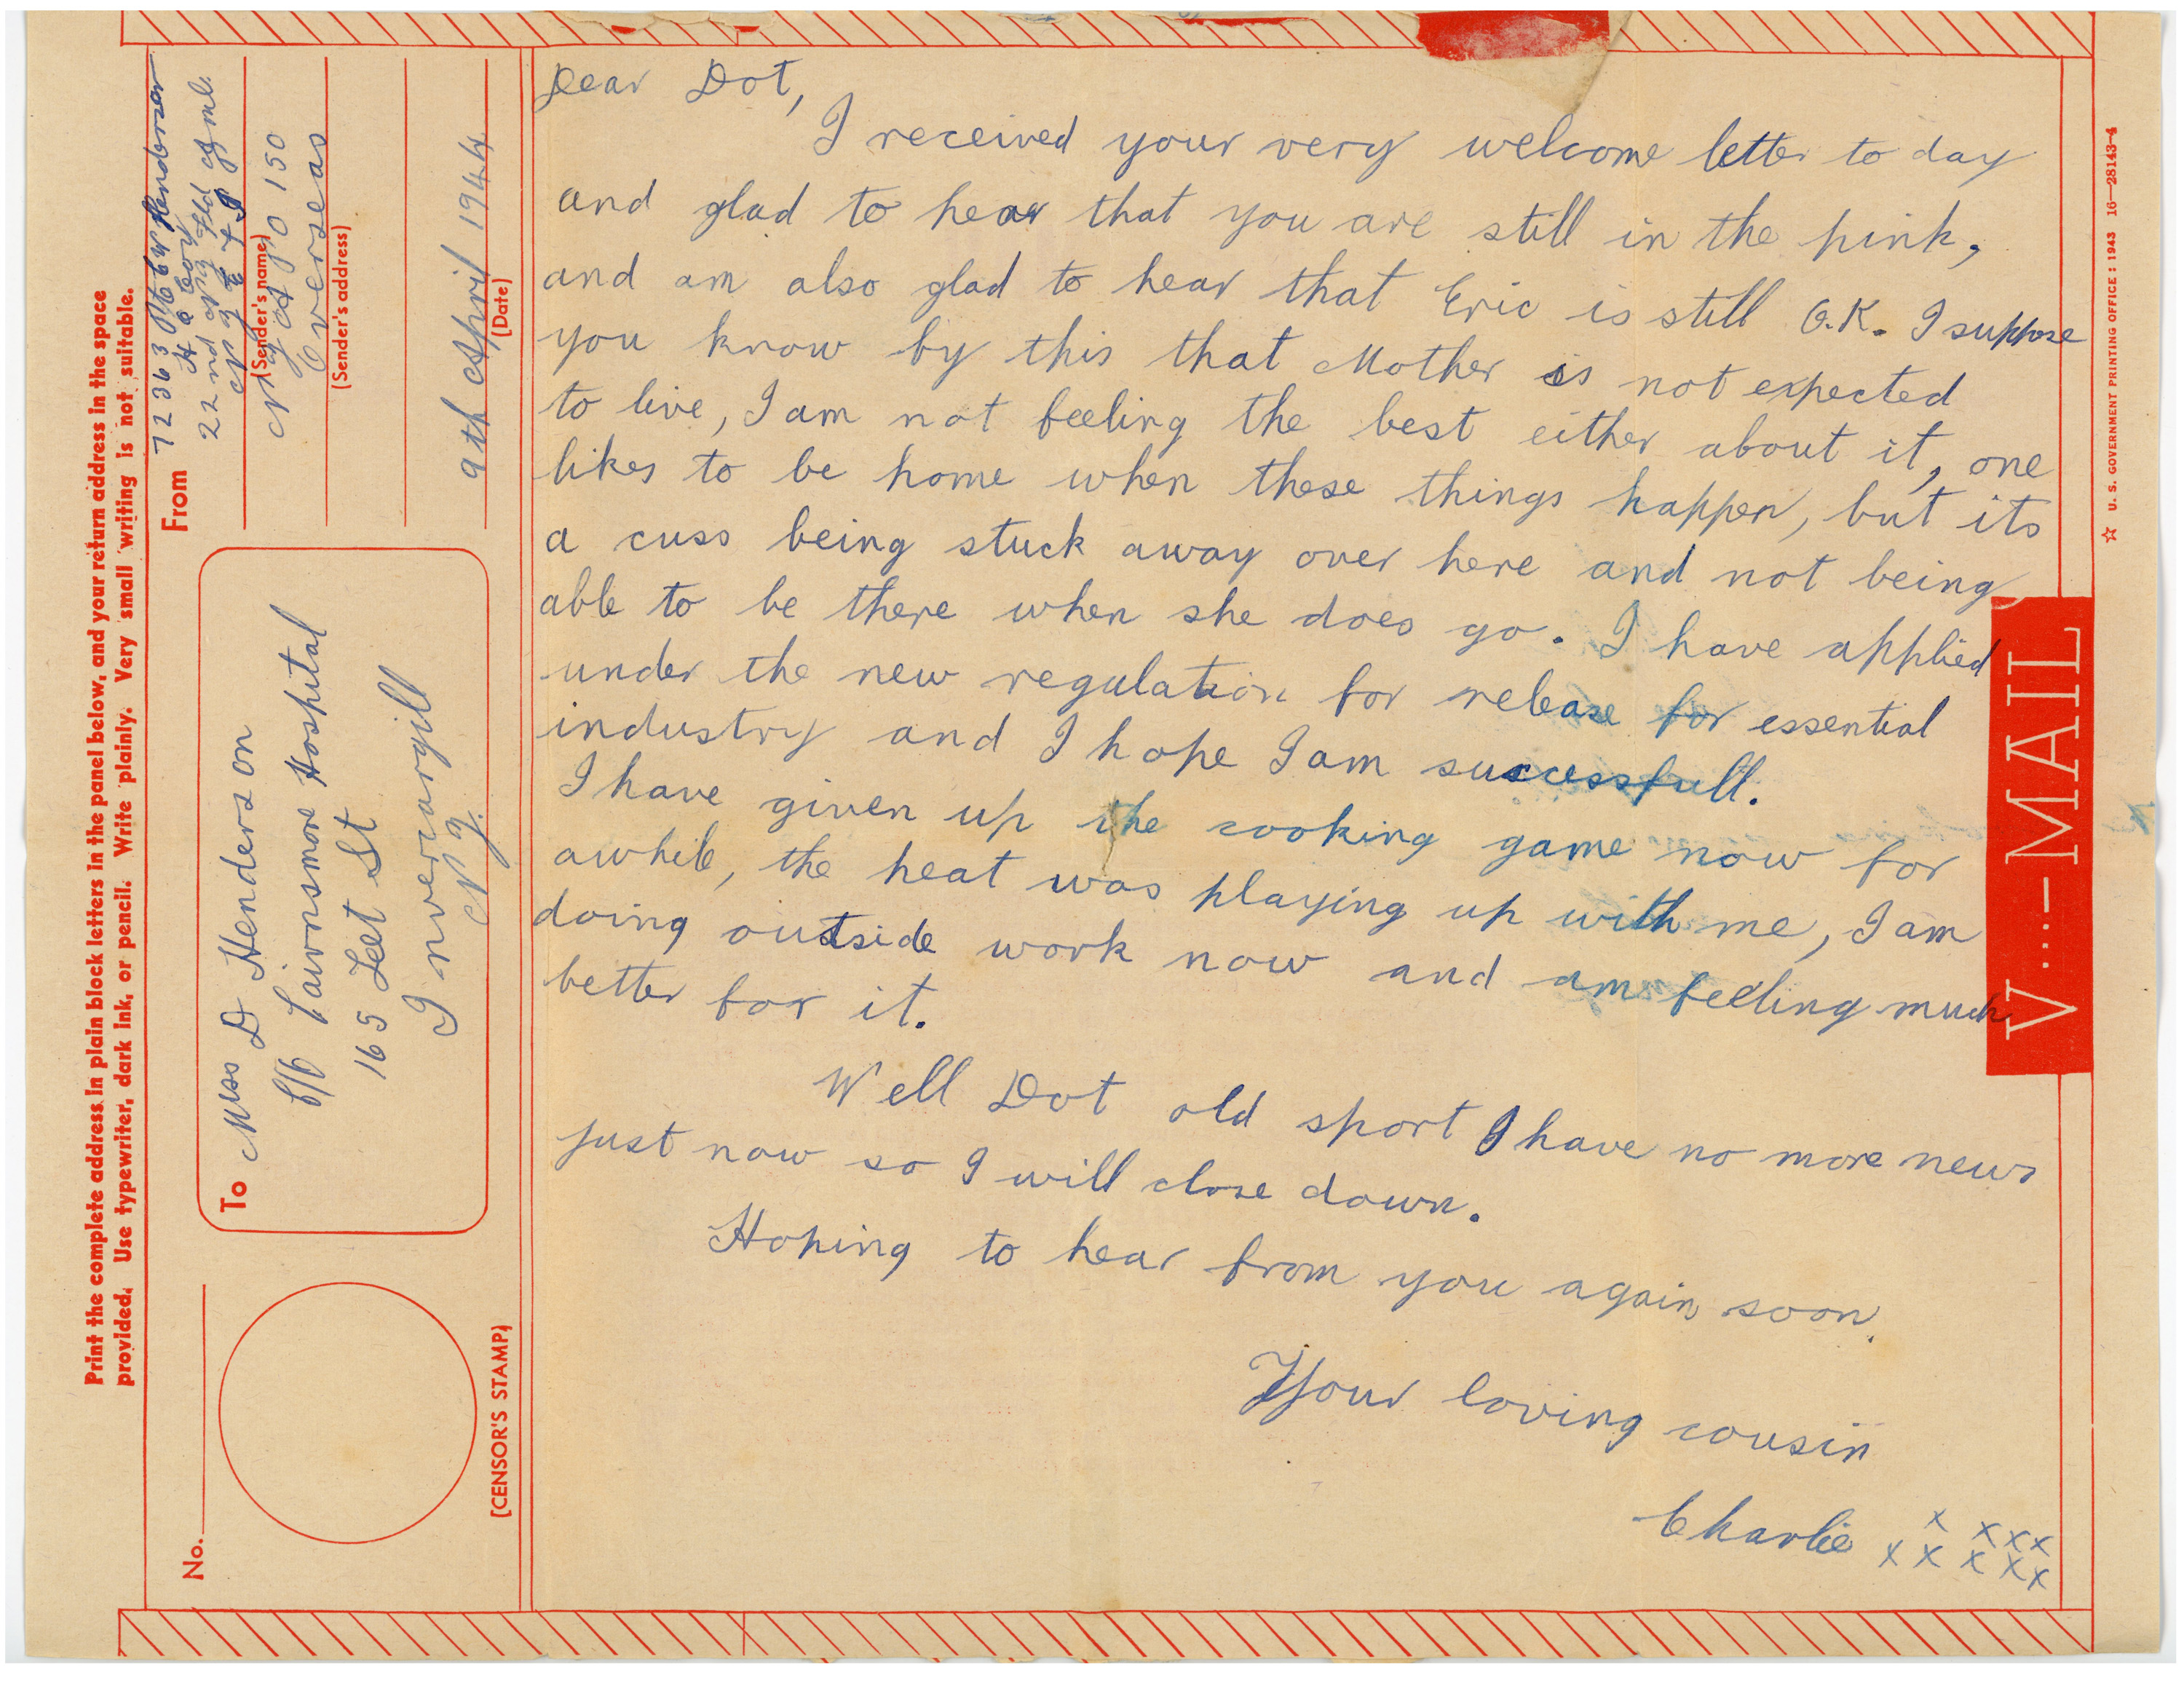 Print the complete address in plain block letters in the panel below, and your return address in the space
provided. Use typewriter, dark ink, or pencil. Write plainly. Very small writing is not suitable.
No.
(CENSOR'S STAMP)
To
Miss D Henderson
c/o Pairnsmore Hospital
165 Leet St
Invercargill
N Z.
From
72363 Pte C W Henderson
A Coy
22nd Fld Amb.
N Z E F I P
(Sender's name)
N Z A P O 150
Overseas
(Sender's address)
9th April 1944
(Date)
Dear Dot,
I received your very welcome letter to day
and glad to hear that you are still in the pink,
and am also glad to hear that Eric is still O.K. I suppose
you know by this that Mother is not expected
to live, I am not feeling the best either about it, one
likes to be home when these things happen, but its
a cuss being stuck away over here and not being
able to be there when she does go. I have applied
under the new regulation for release for essential
industry and I hope I am successfull.
I have given up the cooking game now for
awhile, the heat was playing up with me, I am
doing outside work now and am feeling much
better for it.
Well Dot old sport I have no more news
just now so I will close down.
Hoping to hear from you again soon.
Your loving cousin
Charlie x x x x
x x x x x
V...—MAIL
☆ U. S. GOVERNMENT PRINTING OFFICE : 1943 16—28143-4